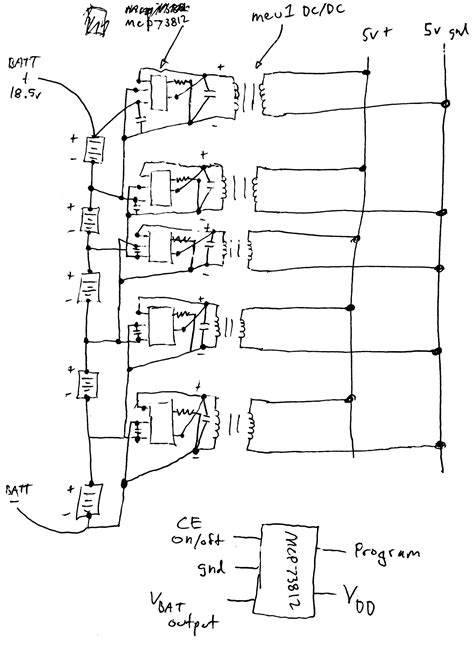 MCP73812
meu1 DC/DC
5v+
5v gnd
BATT
+
18.5v
+
-
+
-
+
-
+
-
+
-
+
-
+
-
+
-
+
-
+
-
BATT
-
CE
on/off
gnd
VBAT
output
MCP73812
Program
VDD